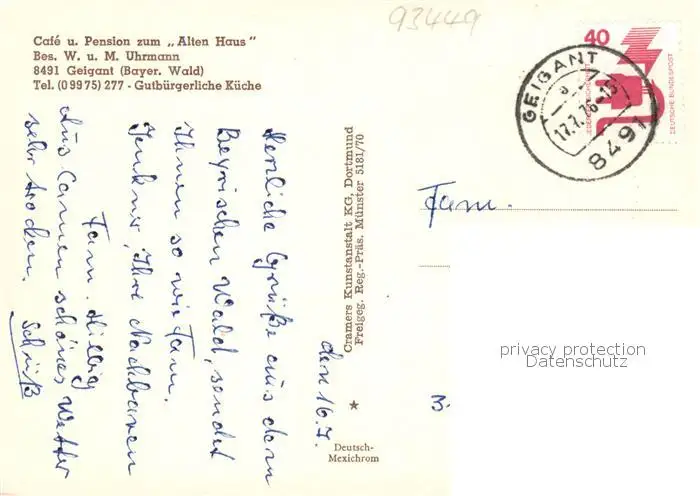 93449
Café u. Pension zum „Alten Haus"
Bes. W. u. M. Uhrmann
8491 Geigant (Bayer. Wald)
Tel. (09975) 277 - Gutbürgerliche Küche
den 16.7.
Herzliche Grüße aus dem
Bayrischen Wald, sendet
Ihnen so wie Fam.
Ihre Nachbaren
Fam. Hillbig
schönes Wetter
sehr trocken. Schüß
Cramers Kunstanstalt KG, Dortmund
Freigeg. Reg.-Präs. Münster 5181/70
Deutsch-
Mexichrom
40
DEUTSCHE BUNDESPOST
GEIGANT
17.7.76-15
8491
Fam.
privacy protection
Datenschutz